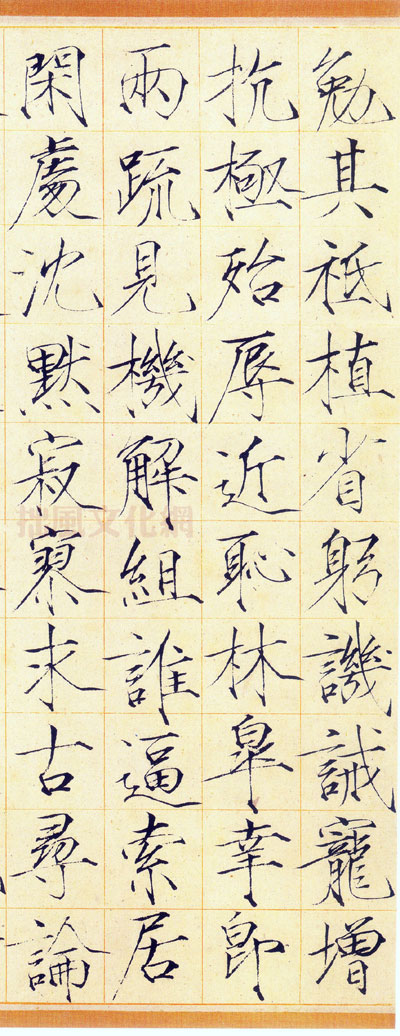 勉其祗植省躬譏誡寵增
抗極殆辱近恥林皋幸即
兩疏見機解組誰逼索居
閑處沈默寂寥求古尋論
拙風文化網